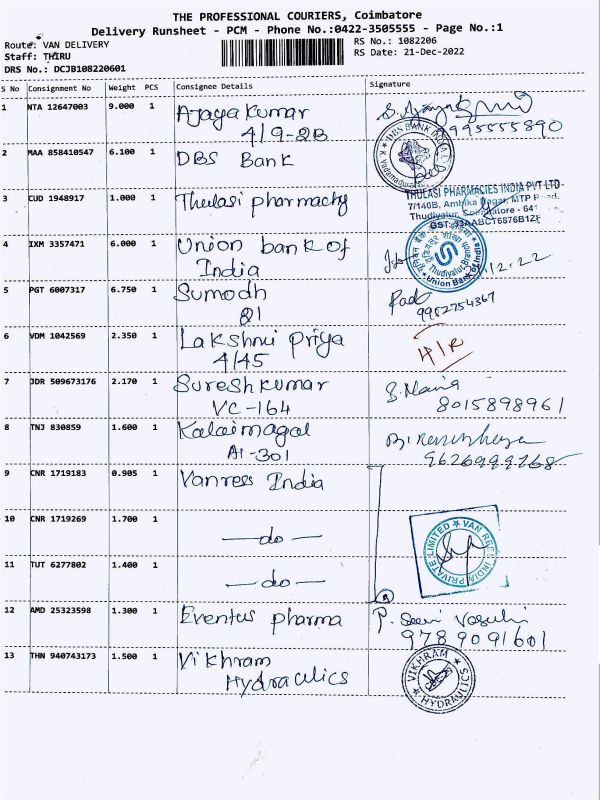 THE PROFESSIONAL COURIERS, Coimbatore
Delivery Runsheet - PCM - Phone No.:0422-3505555 - Page No.:1
Route: VAN DELIVERY RS No.: 1082206
Staff: THIRU RS Date: 21-Dec-2022
DRS No.: DCJB108220601
S No Consignment No Weight PCS Consignee Details Signature
1 NTA 12647003 9.000 1 Ajaya kumar
4/9-2B 9995555890
2 MAA 858410547 6.100 1 DBS Bank DBS BANK
3 CUD 1948917 1.000 1 Thulasi pharmachy THULASI PHARMACIES INDIA PVT LTD
7/140B, Ambika Nagar, MTP Road,
Thudiyalur, Coimbatore - 641
GST: 33AABCT6876B1Z
4 IXM 3357471 6.000 1 Union bank of
India 12.22
Thudiyalur Branch
Union Bank of India
5 PGT 6007317 6.750 1 Sumodh
Q1 9952754367
6 VDM 1042569 2.350 1 Lakshmi priya
4/45
7 JDR 509673176 2.170 1 Suresh kumar
VC-164 8015898961
8 TNJ 830859 1.600 1 Kalaimagal
A1-301
9 CNR 1719183 0.905 1 Vanress India
10 CNR 1719269 1.700 1 —do—
VAN REES INDIA PRIVATE LIMITED
11 TUT 6277802 1.400 1 —do—
12 AMD 25323598 1.300 1 Eventus pharma P.
9789091601
13 THN 940743173 1.500 1 Vikhram
Hydraulics VIKHRAM HYDRAULICS